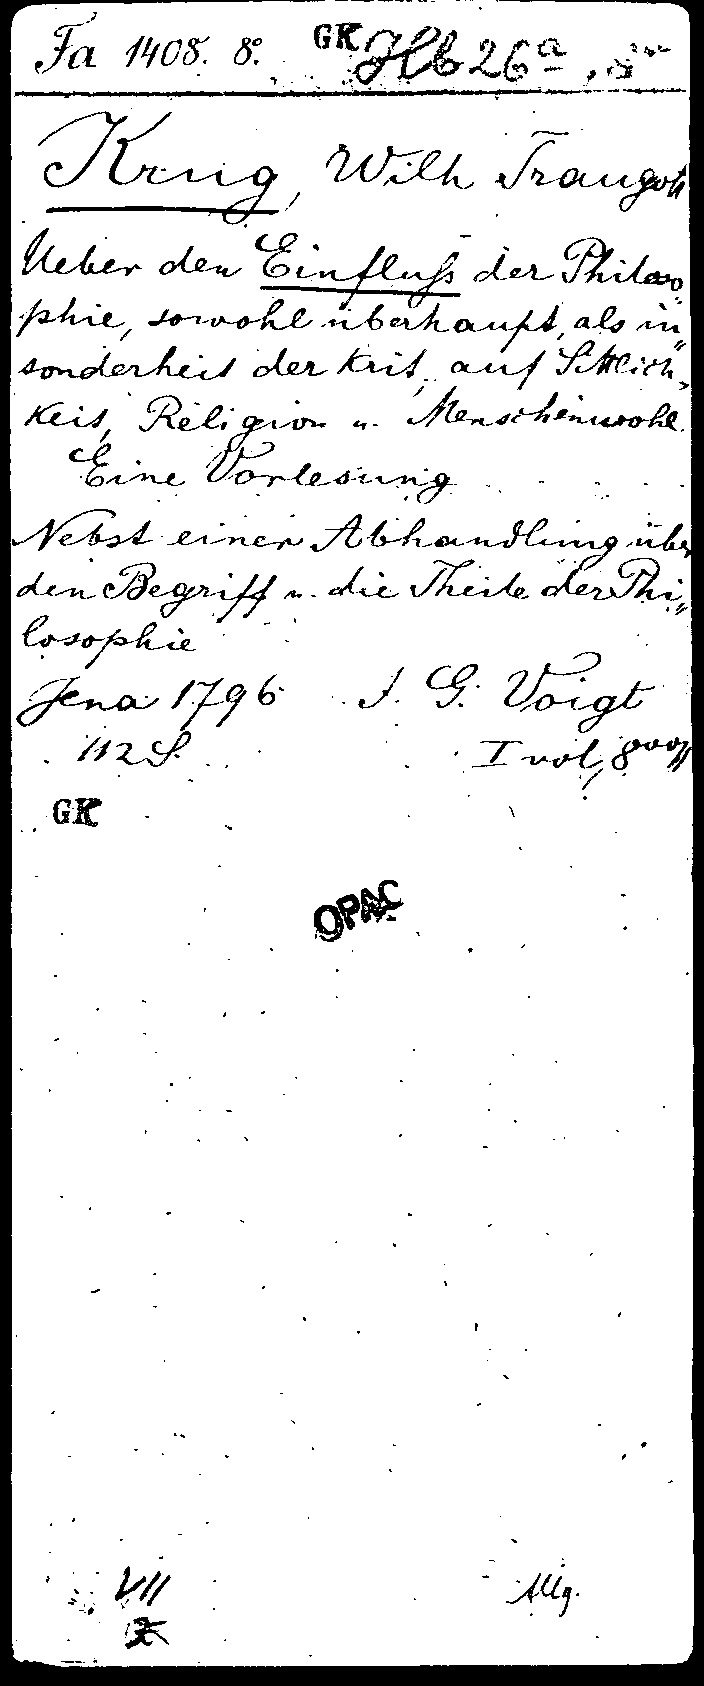 Fa 1408. 8°. GK Hb 26a
Krug, Wilh Traugott
Ueber den Einfluß der Philoso-
phie, sowohl überhaupt, als in-
sonderheit der krit, auf Sittlich-
keit, Religion u. Menschenwohl.
Eine Vorlesung
Nebst einer Abhandlung über
den Begriff u. die Theile der Phi-
losophie
Jena 1796 J. G. Voigt
112 S. I vol, 8vo
GK
OPAC
VII Allg.